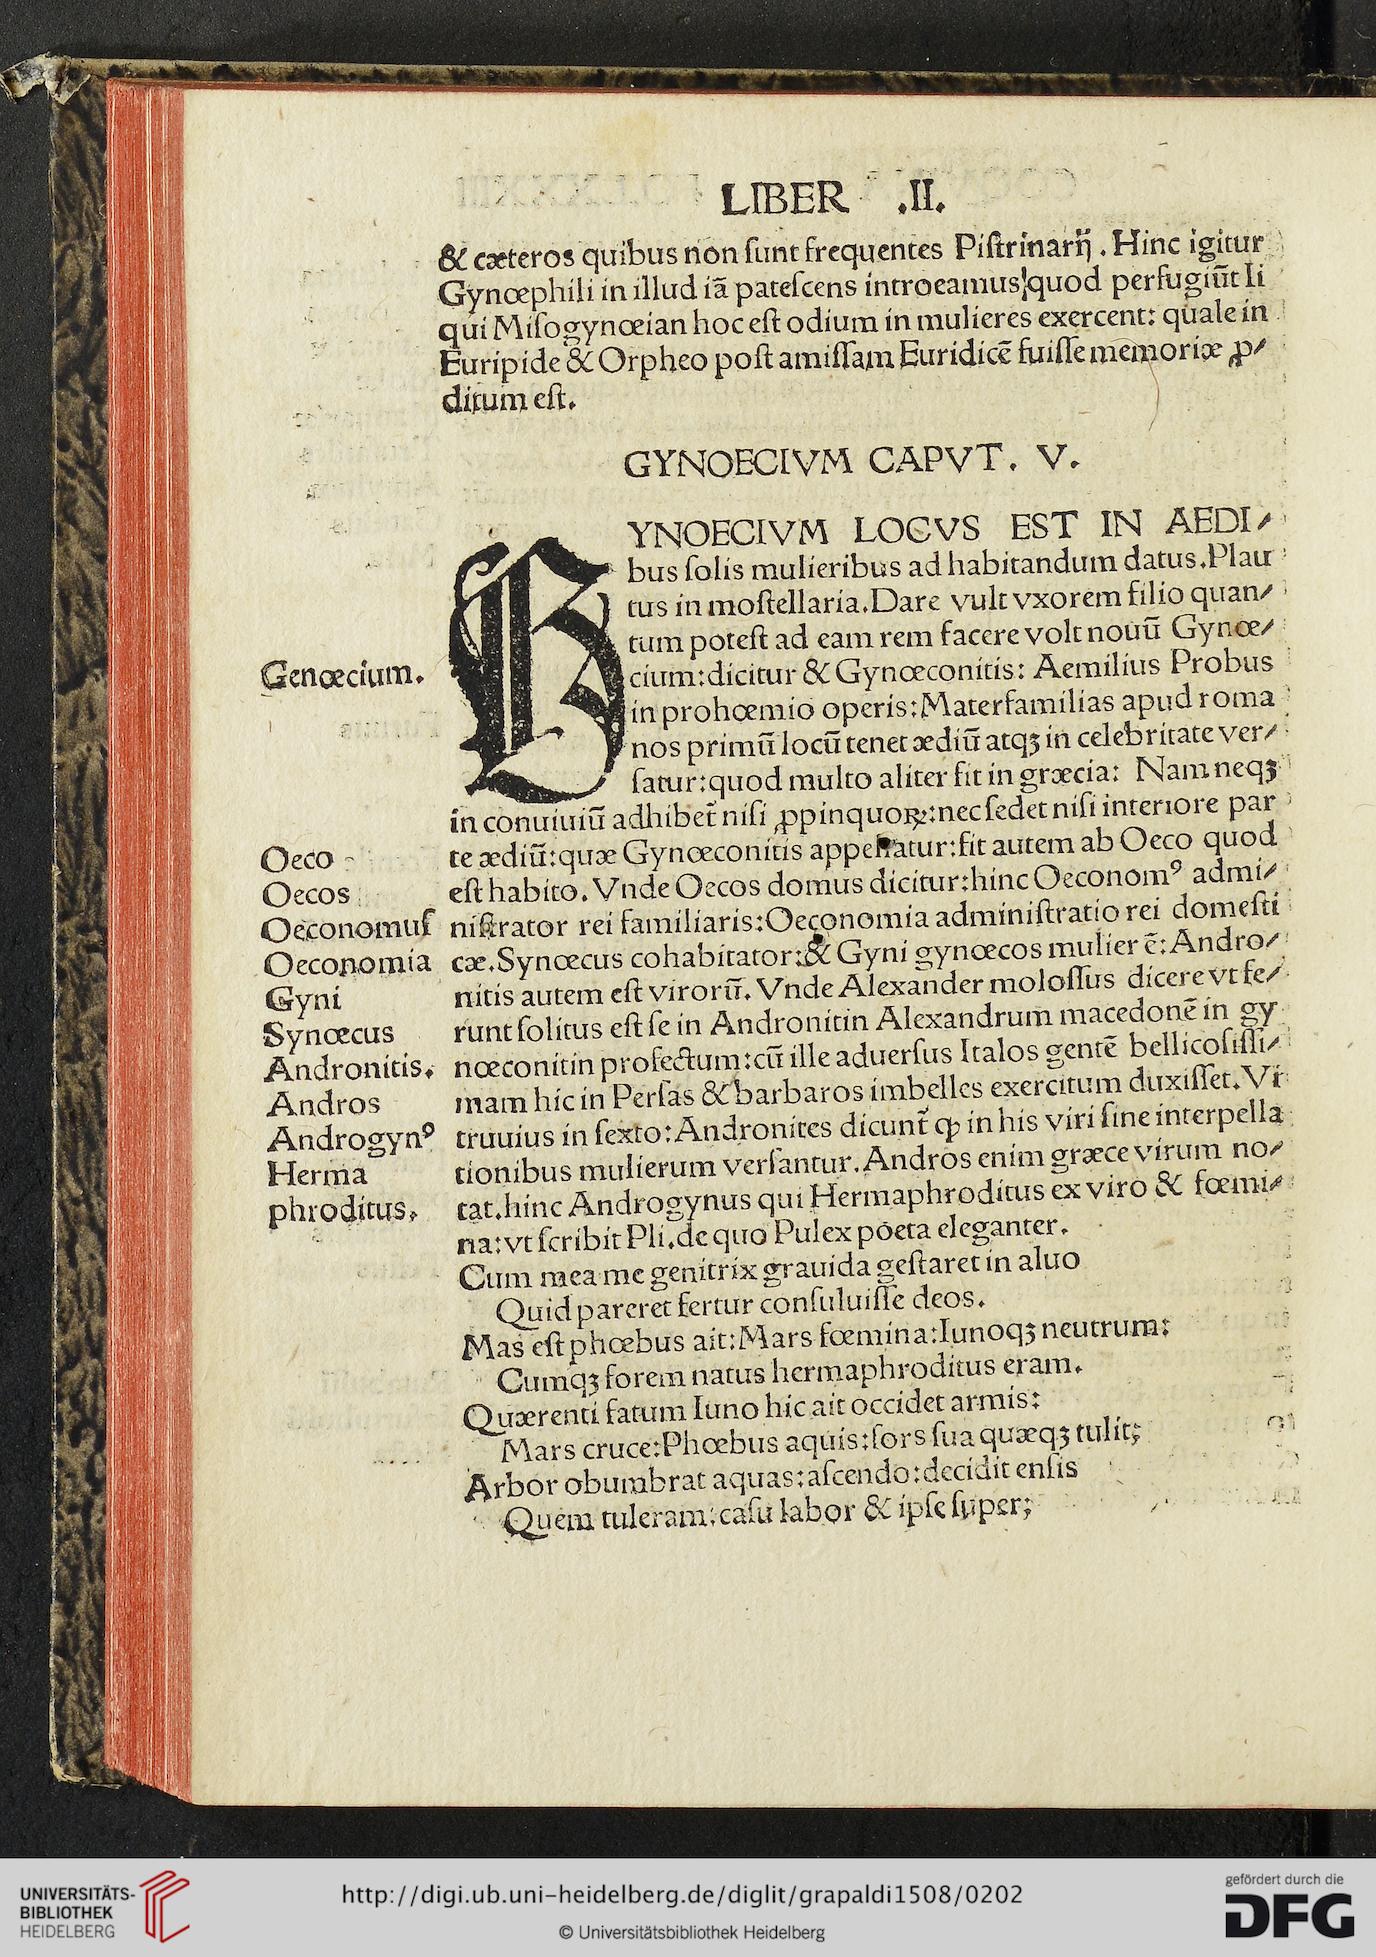 LIBER .II.
& cæteros quibus non ſunt frequentes Piſtrinarij . Hinc igitur
Gynœphili in illud iā pateſcens introeamus!quod perfugiūt Ii
qui Miſogynœian hoc eſt odium in mulieres exercent: quale in
Euripide & Orpheo poſt amiſſam Euridicē fuiſſe memoriæ ꝓ/
ditum eſt.
GYNOECIVM CAPVT. V.
YNOECIVM LOCVS EST IN AEDI/
bus ſolis mulieribus ad habitandum datus.Plau
tus in moſtellaria.Dare vult vxorem filio quan/
tum poteſt ad eam rem facere volt nouū Gynœ/
Genœcium.
cium:dicitur & Gynœconitis: Aemilius Probus
in prohœmio operis:Materfamilias apud roma
nos primū locū tenet ædiū atqꝫ in celebritate ver/
ſatur:quod multo aliter fit in græcia: Nam neqꝫ
in conuiuiū adhibet̄ niſi ꝓpinquoꝝ:nec ſedet niſi interiore par
Oeco
te ædiū:quæ Gynœconitis appellatur:fit autem ab Oeco quod
Oecos
eſt habito. Vnde Oecos domus dicitur:hinc Oeconomꝰ admi/
Oeconomuſ
niſtrator rei familiaris:Oeconomia adminiſtratio rei domeſti
Oeconomia
cæ.Synœcus cohabitator:& Gyni gynœcos mulier ē: Andro/
Gyni
nitis autem eſt virorū. Vnde Alexander moloſſus dicere vt fe/
Synœcus
runt ſolitus eſt ſe in Andronitin Alexandrum macedonē in gy
Andronitis.
nœconitin profectum:cū ille aduerſus Italos gentē bellicoſiſſi/
Andros
mam hic in Perſas & barbaros imbelles exercitum duxiſſet.Vi
Androgynꝰ
truuius in ſexto:Andronites dicunt̄ ꝙ in his viri ſine interpella
Herma
tionibus mulierum verſantur.Andros enim græce virum no/
phroditus.
tat.hinc Androgynus qui Hermaphroditus ex viro & fœmi/
na:vt ſcribit Pli.de quo Pulex poeta eleganter.
Cum mea me genitrix grauida geſtaret in aluo
Quid pareret fertur conſuluiſſe deos.
Mas eſt phœbus ait:Mars fœmina:Iunoqꝫ neutrum:
Cumqꝫ forem natus hermaphroditus eram.
Quærenti fatum Iuno hic ait occidet armis:
Mars cruce:Phœbus aquis:ſors ſua quæqꝫ tulit;
Arbor obumbrat aquas:aſcendo:decidit enſis
Quem tuleram:caſu labor & ipſe ſuper;
UNIVERSITÄTS-
BIBLIOTHEK
HEIDELBERG
http://digi.ub.uni-heidelberg.de/diglit/grapaldi1508/0202
© Universitätsbibliothek Heidelberg
gefördert durch die
DFG